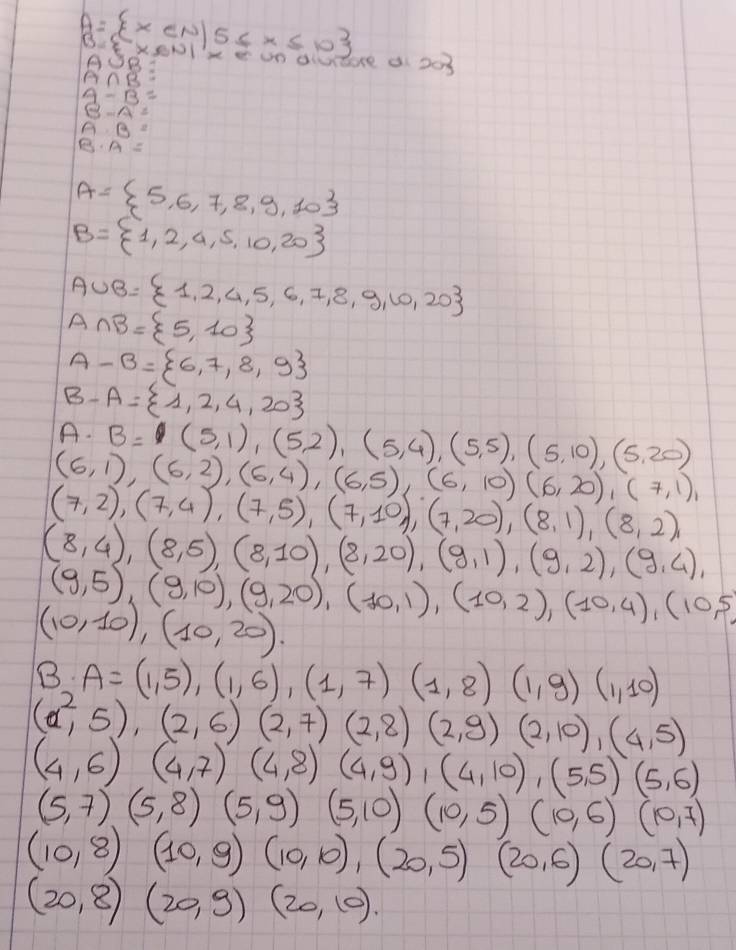 A = {x ∈ N | 5 ≤ x ≤ 10}
B = {x ∈ N | x è un divisore di 20}
A ∪ B =
A ∩ B =
A - B =
B - A =
A · B =
B · A =
A = {5, 6, 7, 8, 9, 10}
B = {1, 2, 4, 5, 10, 20}
A ∪ B = {1, 2, 4, 5, 6, 7, 8, 9, 10, 20}
A ∩ B = {5, 10}
A - B = {6, 7, 8, 9}
B - A = {1, 2, 4, 20}
A · B = (5,1), (5,2), (5,4), (5,5), (5,10), (5,20)
(6,1), (6,2), (6,4), (6,5), (6,10) (6,20), (7,1),
(7,2), (7,4), (7,5), (7,10), (7,20), (8,1), (8,2),
(8,4), (8,5), (8,10), (8,20), (9,1), (9,2), (9,4),
(9,5), (9,10), (9,20), (10,1), (10,2), (10,4), (10,5)
(10,10), (10,20).
B · A = (1,5), (1,6), (1,7) (1,8) (1,9) (1,10)
(2,5), (2,6) (2,7) (2,8) (2,9) (2,10), (4,5)
(4,6) (4,7) (4,8) (4,9), (4,10), (5,5) (5,6)
(5,7) (5,8) (5,9) (5,10) (10,5) (10,6) (10,7)
(10,8) (10,9) (10,10), (20,5) (20,6) (20,7)
(20,8) (20,9) (20,10).